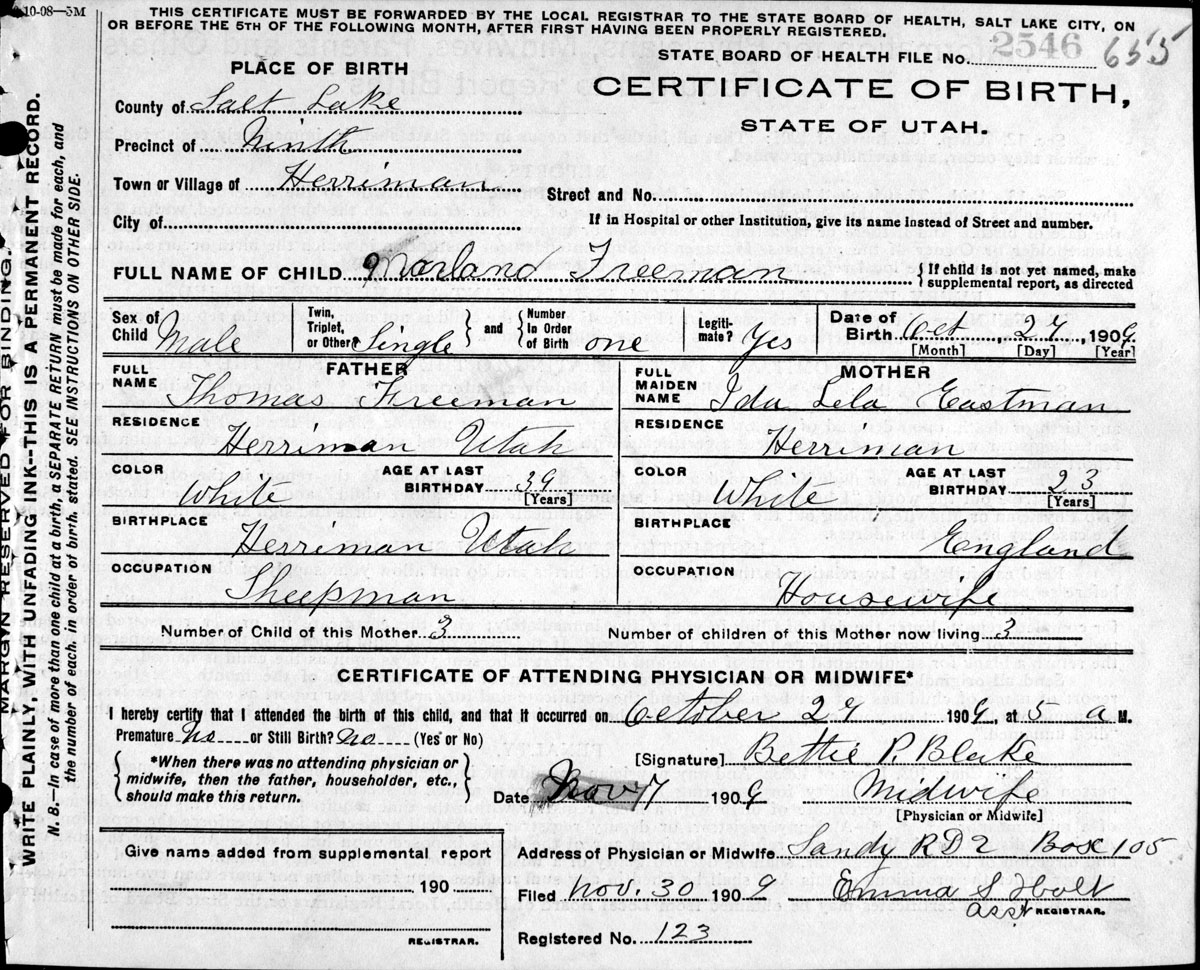 10-08—3M
THIS CERTIFICATE MUST BE FORWARDED BY THE LOCAL REGISTRAR TO THE STATE BOARD OF HEALTH, SALT LAKE CITY, ON
OR BEFORE THE 5TH OF THE FOLLOWING MONTH, AFTER FIRST HAVING BEEN PROPERLY REGISTERED.
2546 655
STATE BOARD OF HEALTH FILE No.
PLACE OF BIRTH
CERTIFICATE OF BIRTH,
STATE OF UTAH.
County of Salt Lake
Precinct of Ninth
Town or Village of Herriman
Street and No.
City of
If in Hospital or other Institution, give its name instead of Street and number.
FULL NAME OF CHILD Morland Freeman { If child is not yet named, make supplemental report, as directed
Sex of Child Male
Twin, Triplet, or Other? Single } and { Number in Order of Birth one
Legitimate? Yes
Date of Birth Oct 27, 1909
[Month] [Day] [Year]
FATHER
FULL NAME Thomas Freeman
RESIDENCE Herriman Utah
COLOR White
AGE AT LAST BIRTHDAY 39 [Years]
BIRTHPLACE Herriman Utah
OCCUPATION Sheepman
MOTHER
FULL MAIDEN NAME Ida Lela Eastman
RESIDENCE Herriman
COLOR White
AGE AT LAST BIRTHDAY 23 [Years]
BIRTHPLACE England
OCCUPATION Housewife
Number of Child of this Mother 3
Number of children of this Mother now living 3
CERTIFICATE OF ATTENDING PHYSICIAN OR MIDWIFE*
I hereby certify that I attended the birth of this child, and that it occurred on October 27 1909, at 5 a M.
Premature No or Still Birth? No (Yes or No)
{ *When there was no attending physician or midwife, then the father, householder, etc., should make this return. }
[Signature] Bettie P. Blake
Date Nov 17 1909
Midwife
[Physician or Midwife]
Give name added from supplemental report
190
REGISTRAR.
Address of Physician or Midwife Sandy RD2 Box 105
Filed Nov. 30 1909
Emma S Holt
Asst REGISTRAR.
Registered No. 123
MARGIN RESERVED FOR BINDING.
WRITE PLAINLY, WITH UNFADING INK--THIS IS A PERMANENT RECORD.
N. B.—In case of more than one child at a birth, a SEPARATE RETURN must be made for each, and
the number of each, in order of birth, stated. SEE INSTRUCTIONS ON OTHER SIDE.